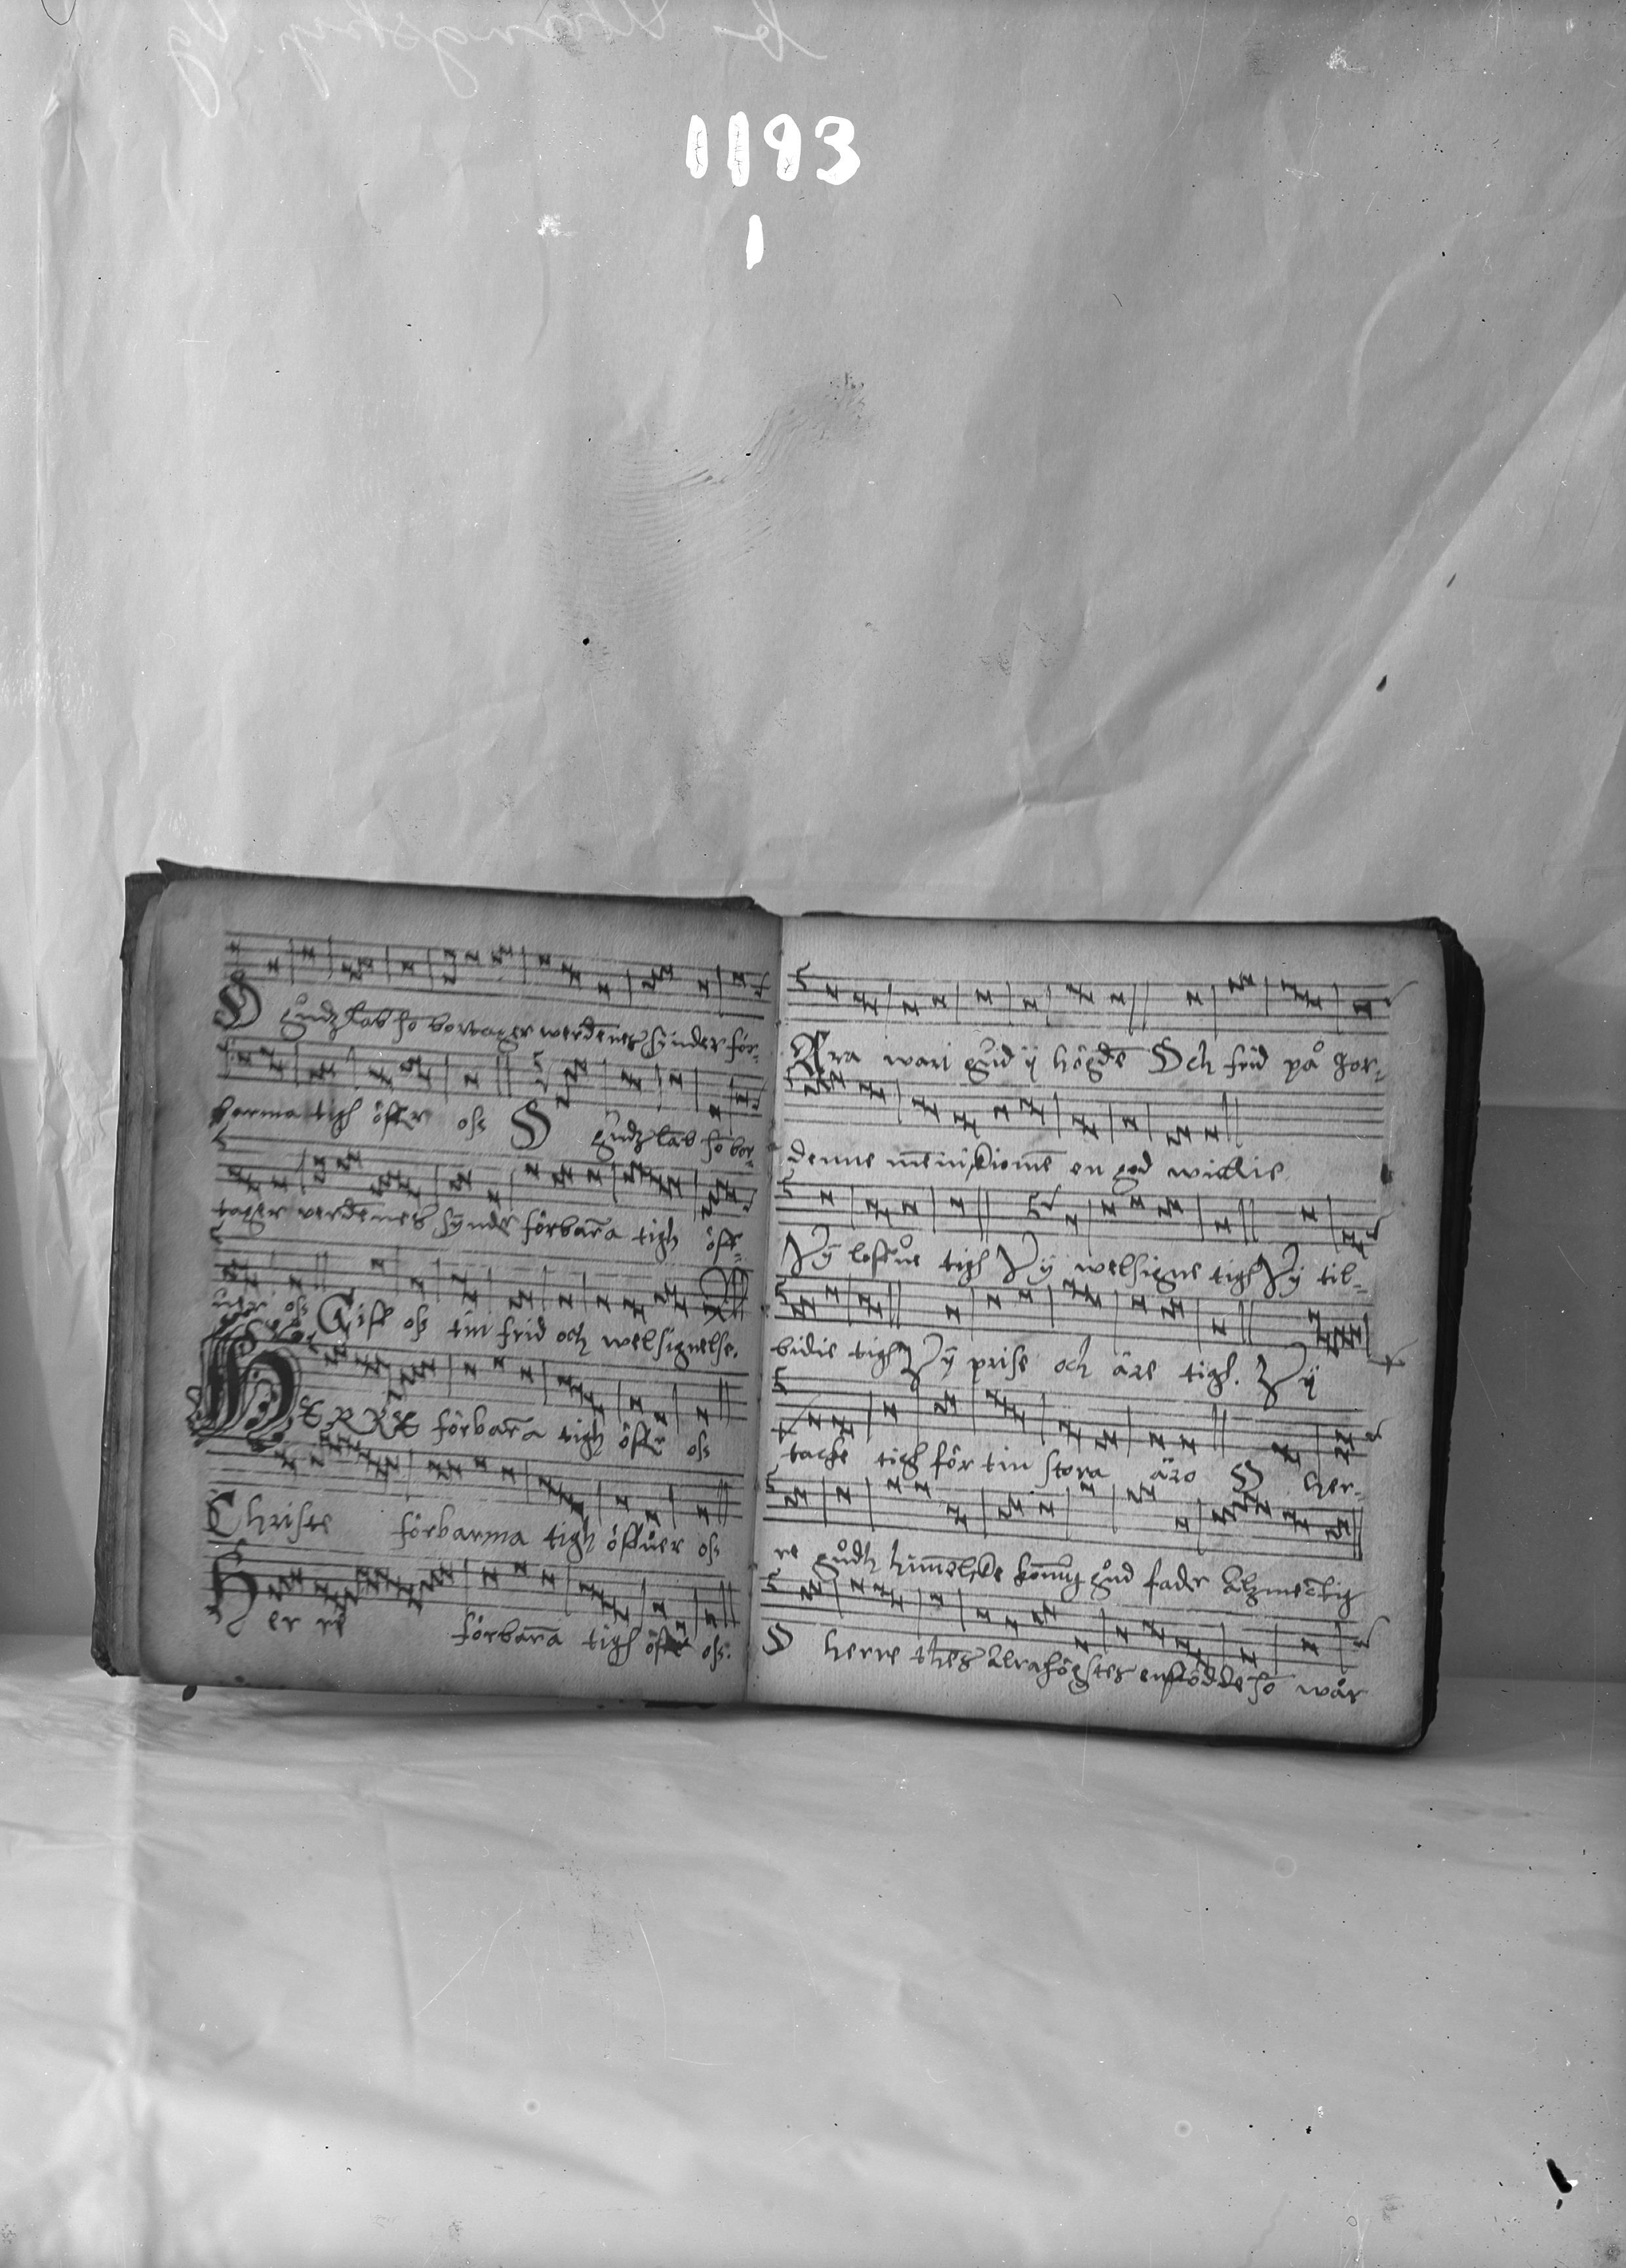 1193
1
O gudz lab so bortager werdenes synder för-
barma tigh öffr oss O gudz lab so bor-
tager verdenes synder förbara tigh öff-
uer oss Giff oss tin frid och welsignelse.
HERRE förbara tigh öffr oss
Christe förbarma tigh öffuer oss
Herre förbara tigh öffr oss.
Ära wari gud ÿ högde Och frid på Jor-
denne menniskiome en god willie
Vÿ loffue tigh Vÿ welsigne tigh Vÿ til-
bidie tigh Vÿ prise och äre tigh. Vÿ
tacke tigh för tin stora äro O her-
re gudh himmelske konung gud fader Alzmectig
O herre thes Alrahögstes enfödde so wår